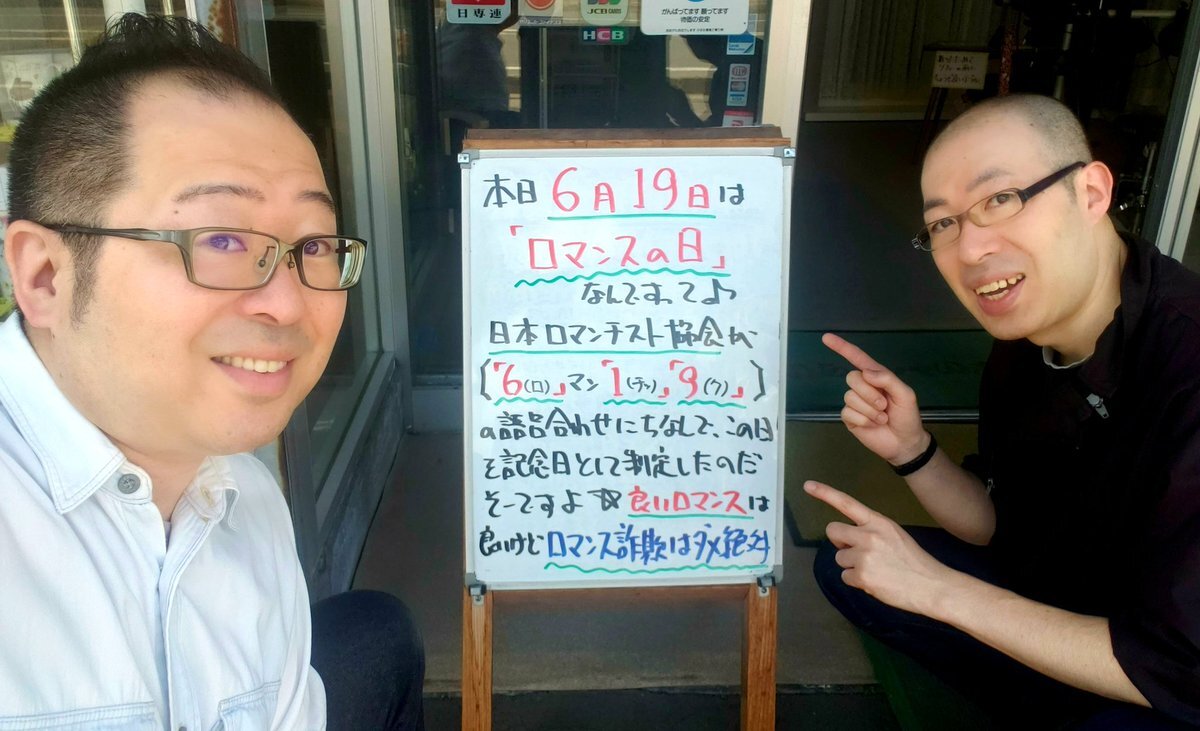 日専連
JCB CARD
HCB
がんばってます 願ってます
物価の安定
本日 6月19日は
「ロマンスの日」
なんですって♪
日本ロマンチスト協会が
(「6(ロ)」マン「1(チッ)」「9(ク)」)
の語呂合わせにちなんで、この日
を記念日として制定したのだ
そーですよ☆良いロマンスは
良いけどロマンス詐欺はダメ絶対